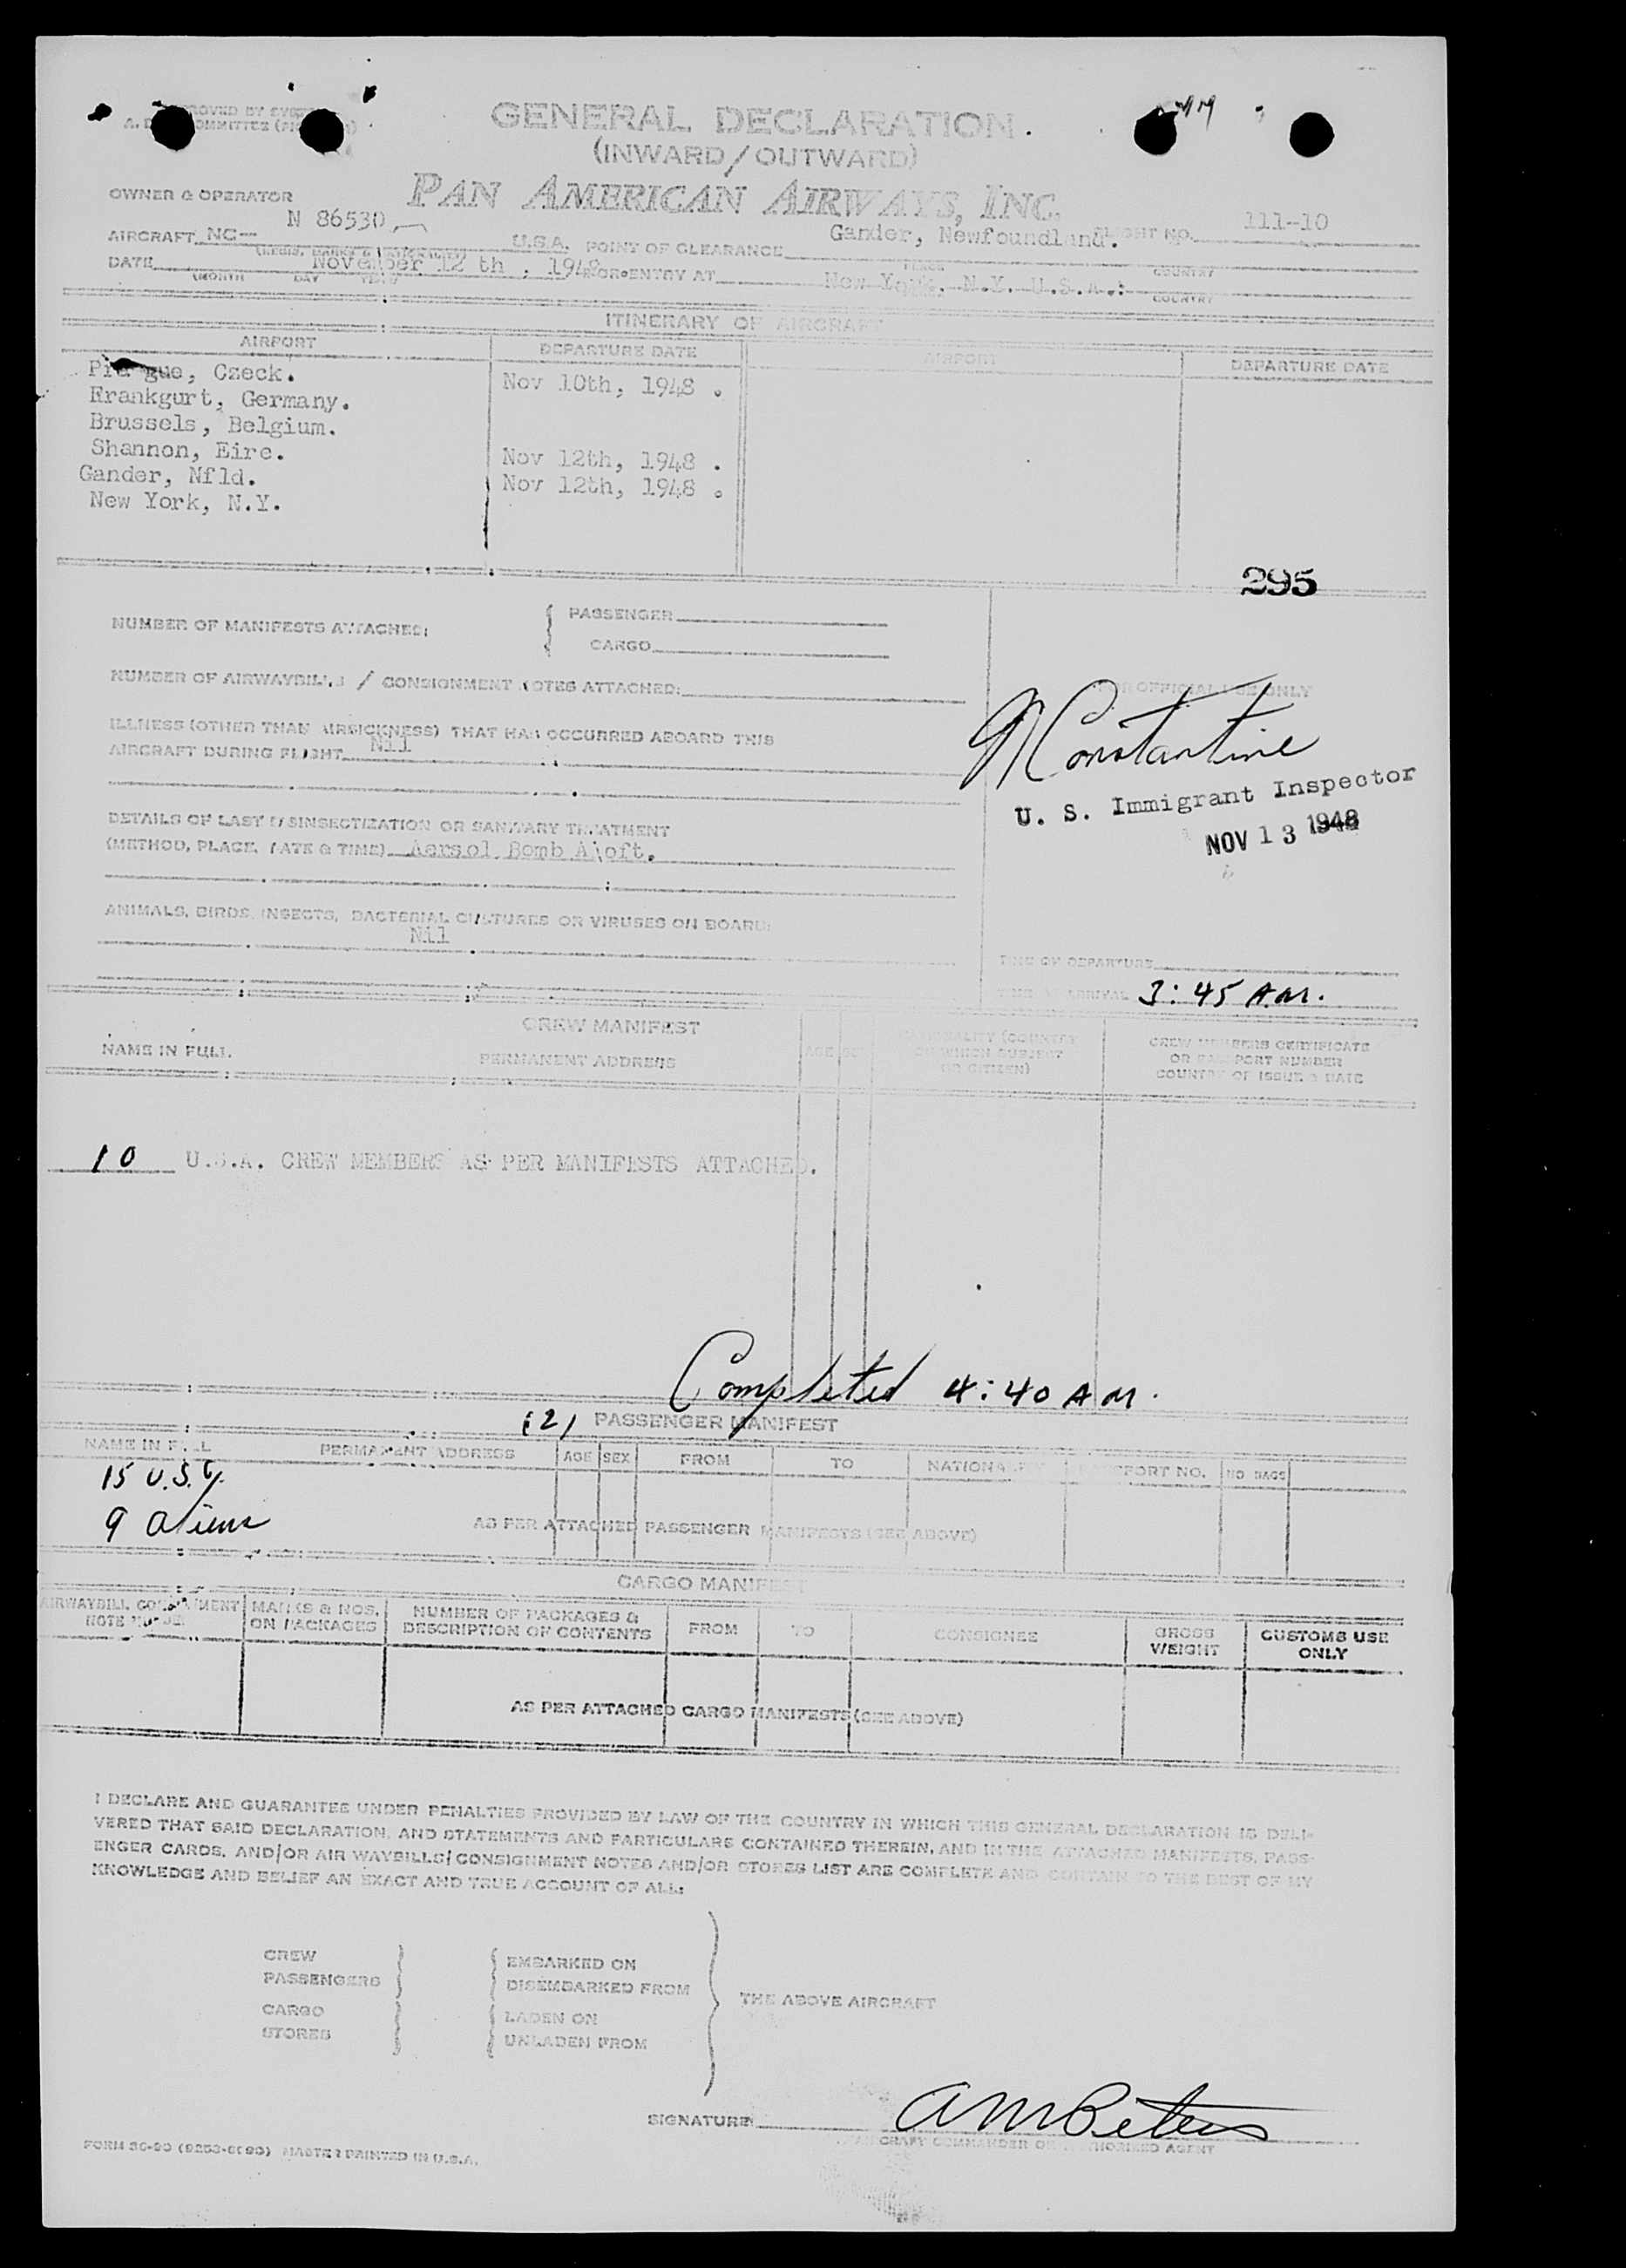 GENERAL DECLARATION.
(INWARD/OUTWARD)
OWNER & OPERATOR PAN AMERICAN AIRWAYS, INC.
AIRCRAFT NC— N 86530 U.S.A. POINT OF CLEARANCE Gander, Newfoundland. FLIGHT NO. 111-10
(REGIS. MARKS & NATIONALITY) PLACE COUNTRY
DATE November 12 th, 1948 FOR ENTRY AT New York, N.Y. U.S.A.
(MONTH DAY YEAR COUNTRY
ITINERARY OF AIRCRAFT
AIRPORT DEPARTURE DATE AIRPORT DEPARTURE DATE
Prague, Czeck. Nov 10th, 1948 .
Frankgurt, Germany.
Brussels, Belgium.
Shannon, Eire. Nov 12th, 1948 .
Gander, Nfld. Nov 12th, 1948 .
New York, N.Y.
295
NUMBER OF MANIFESTS ATTACHED: PASSENGER
CARGO
NUMBER OF AIRWAYBILLS / CONSIGNMENT NOTES ATTACHED:
FOR OFFICIAL USE ONLY
ILLNESS (OTHER THAN AIRSICKNESS) THAT HAS OCCURRED ABOARD THIS
AIRCRAFT DURING FLIGHT Nil
Constantine
U. S. Immigrant Inspector
NOV 13 1948
DETAILS OF LAST DISINSECTIZATION OR SANITARY TREATMENT
(METHOD, PLACE, DATE & TIME) Aersol Bomb Aloft.
ANIMALS, BIRDS, INSECTS, BACTERIAL CULTURES OR VIRUSES ON BOARD:
Nil
TIME OF DEPARTURE
TIME OF ARRIVAL 3:45 A.M.
CREW MANIFEST
NAME IN FULL PERMANENT ADDRESS AGE SEX NATIONALITY (COUNTRY OF WHICH SUBJECT OR CITIZEN) CREW MEMBERS CERTIFICATE OR PASSPORT NUMBER COUNTRY OF ISSUE & DATE
10 U.S.A. CREW MEMBERS AS PER MANIFESTS ATTACHED.
Completed 4:40 AM.
(2) PASSENGER MANIFEST
NAME IN FULL PERMANENT ADDRESS AGE SEX FROM TO NATIONALITY PASSPORT NO. NO BAGS
15 U.S.C.
9 Aliens
AS PER ATTACHED PASSENGER MANIFESTS (SEE ABOVE)
CARGO MANIFEST
AIRWAYBILL CONSIGNMENT NOTE NUMBER MARKS & NOS. ON PACKAGES NUMBER OF PACKAGES & DESCRIPTION OF CONTENTS FROM TO CONSIGNEE GROSS WEIGHT CUSTOMS USE ONLY
AS PER ATTACHED CARGO MANIFESTS (SEE ABOVE)
I DECLARE AND GUARANTEE UNDER PENALTIES PROVIDED BY LAW OF THE COUNTRY IN WHICH THIS GENERAL DECLARATION IS DELI-
VERED THAT SAID DECLARATION, AND STATEMENTS AND PARTICULARS CONTAINED THEREIN, AND IN THE ATTACHED MANIFESTS, PASS-
ENGER CARDS, AND/OR AIR WAYBILLS/CONSIGNMENT NOTES AND/OR STORES LIST ARE COMPLETE AND CONTAIN TO THE BEST OF MY
KNOWLEDGE AND BELIEF AN EXACT AND TRUE ACCOUNT OF ALL:
CREW EMBARKED ON
PASSENGERS DISEMBARKED FROM
THE ABOVE AIRCRAFT
CARGO LADEN ON
STORES UNLADEN FROM
SIGNATURE AM Peters
AIRCRAFT COMMANDER OR AUTHORIZED AGENT
MASTER PRINTED IN U.S.A.